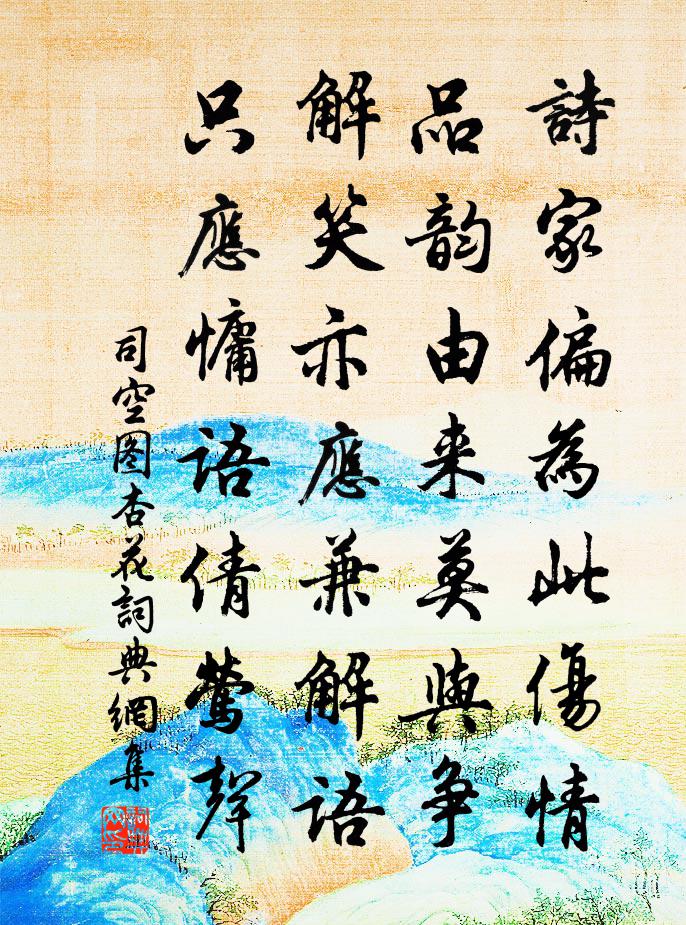 詩家偏為此傷情
品韵由来莫與爭
解笑亦應兼解語
只應慵語倩鶯聲
司空图杏花詞典網集